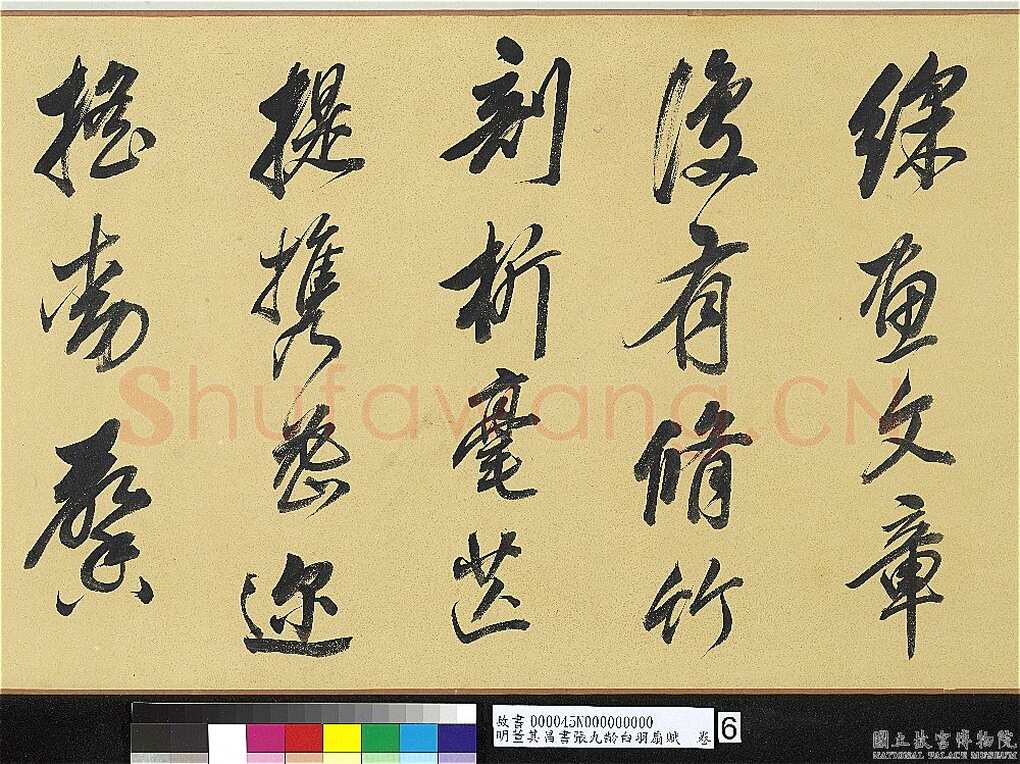 綵畫文章
復有脩竹
剖析毫芒
提攜密迩
搖動馨
Shufawang.CN
故書 000045N000000000
明董其昌書張九齡白羽扇賦 卷
6
國立故宮博物院
NATIONAL PALACE MUSEUM